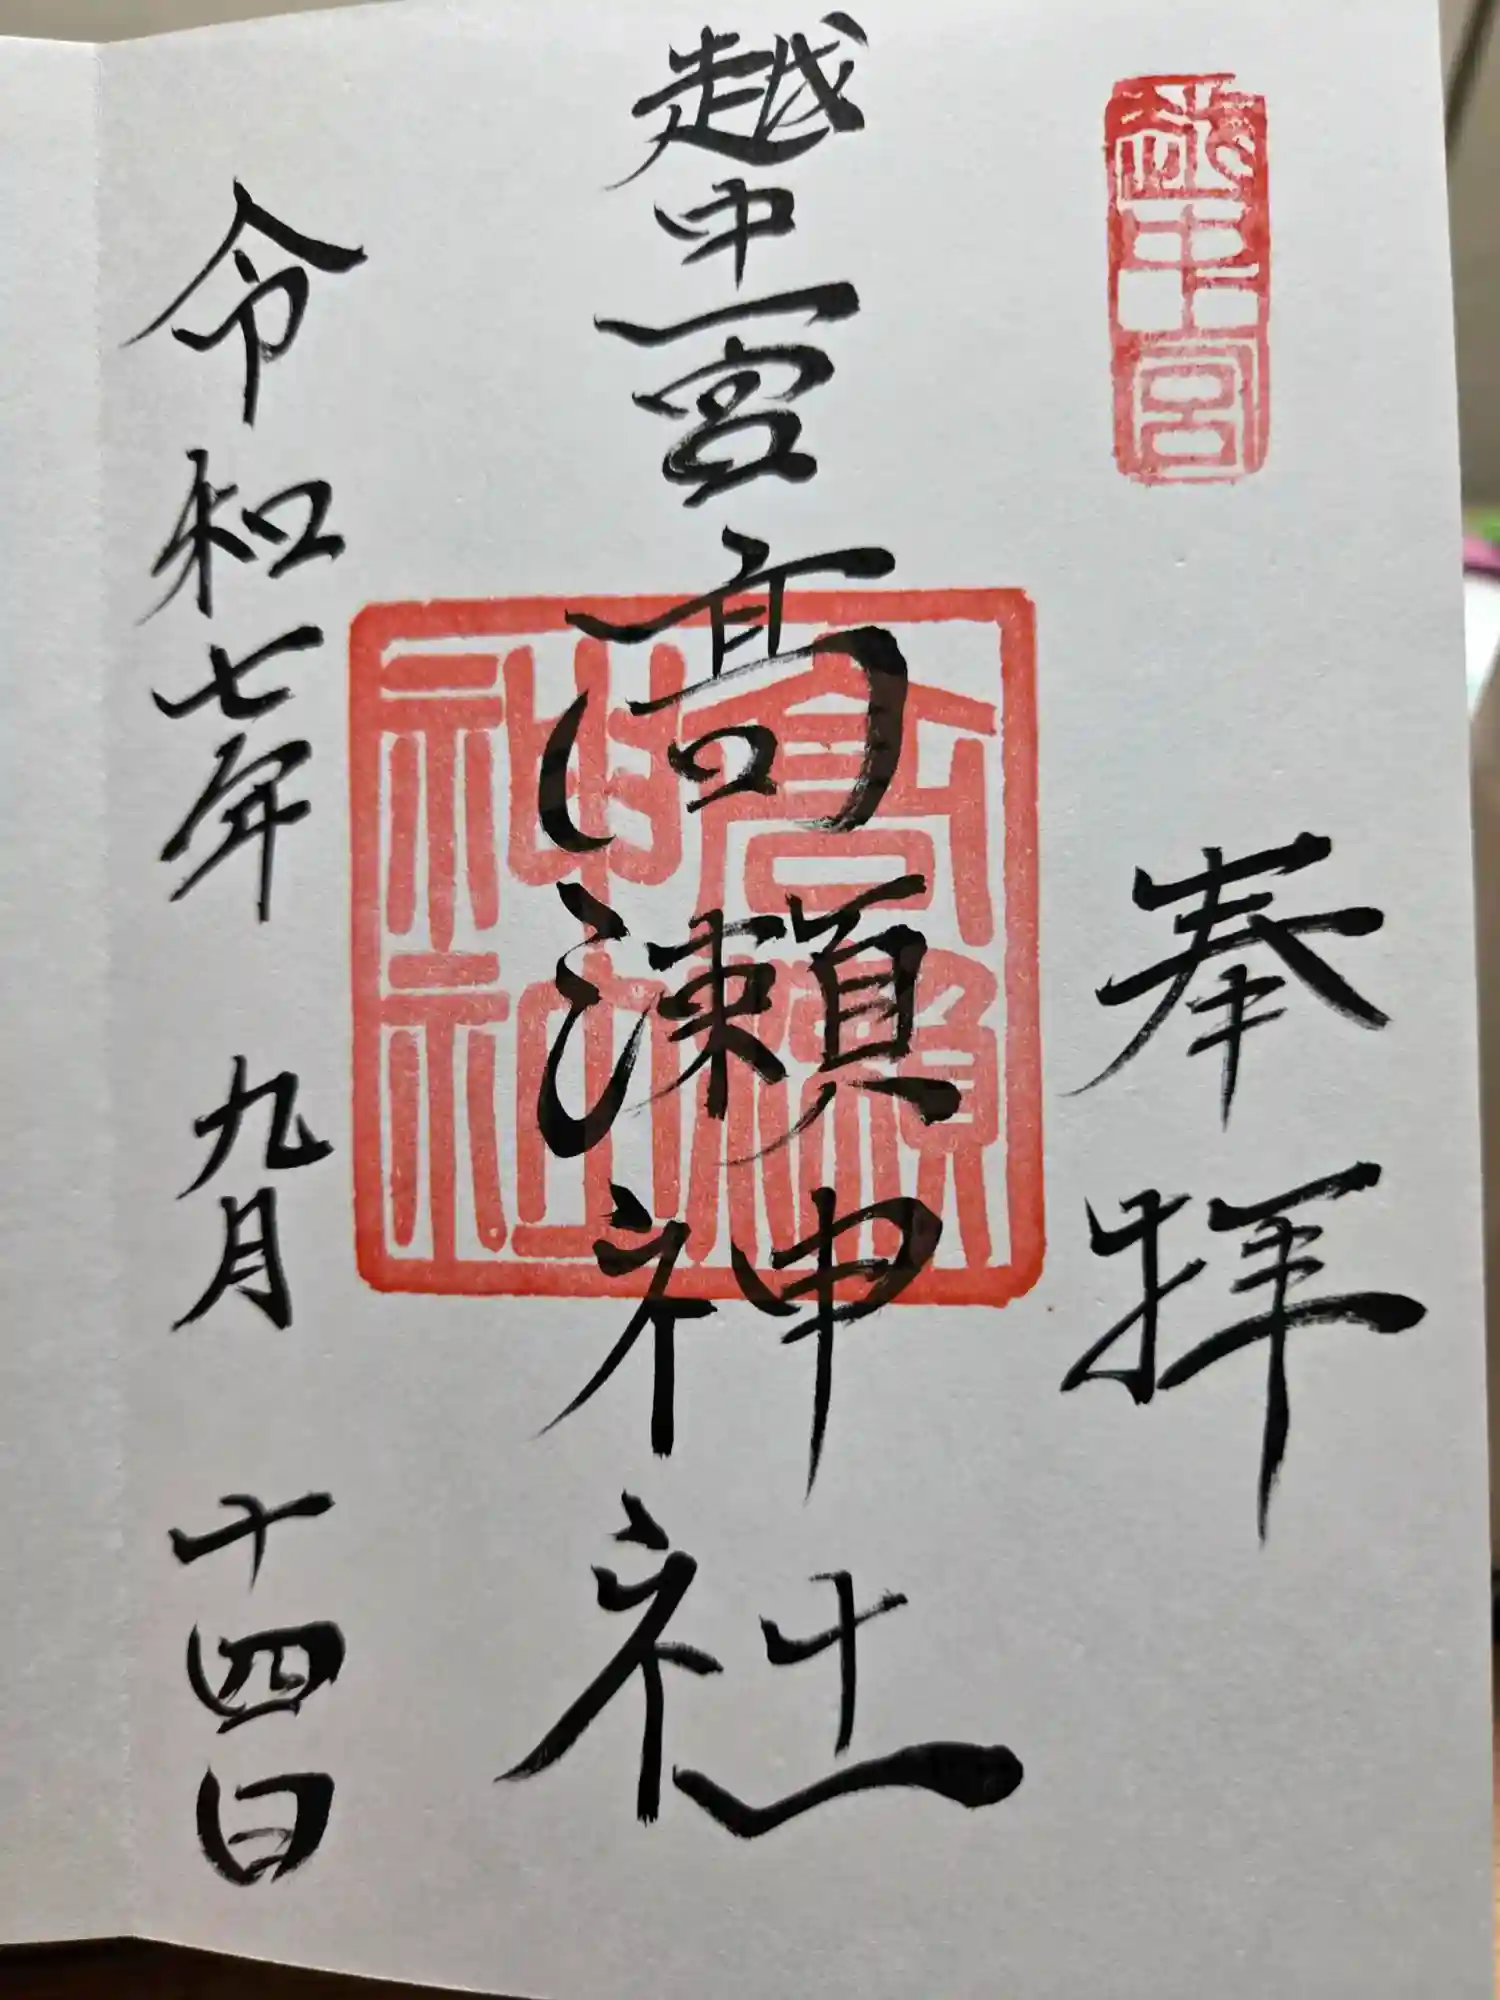 奉拝
越中一宮高瀬神社
高瀬神社
令和七年九月十四日